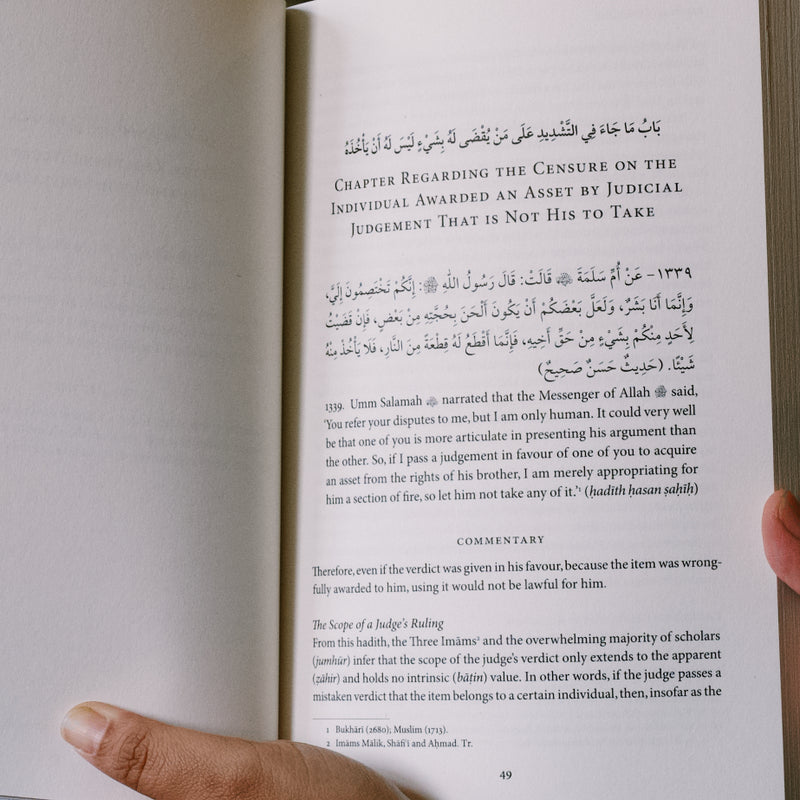 بَابُ مَا جَاءَ فِي التَّشْدِيدِ عَلَى مَنْ يُقْضَى لَهُ بِشَيْءٍ لَيْسَ لَهُ أَنْ يَأْخُذَهُ
Chapter Regarding the Censure on the
Individual Awarded an Asset by Judicial
Judgement That is Not His to Take
١٣٣٩ – عَنْ أُمِّ سَلَمَةَ قَالَتْ: قَالَ رَسُولُ اللهِ ﷺ: إِنَّكُمْ تَخْتَصِمُونَ إِلَيَّ،
وَإِنَّمَا أَنَا بَشَرٌ، وَلَعَلَّ بَعْضَكُمْ أَنْ يَكُونَ أَلْحَنَ بِحُجَّتِهِ مِنْ بَعْضٍ، فَإِنْ قَضَيْتُ
لِأَحَدٍ مِنْكُمْ بِشَيْءٍ مِنْ حَقِّ أَخِيهِ، فَإِنَّمَا أَقْطَعُ لَهُ قِطْعَةً مِنَ النَّارِ، فَلَا يَأْخُذْ مِنْهُ
شَيْئًا. (حَدِيثٌ حَسَنٌ صَحِيحٌ)
1339. Umm Salamah narrated that the Messenger of Allah ﷺ said,
‘You refer your disputes to me, but I am only human. It could very well
be that one of you is more articulate in presenting his argument than
the other. So, if I pass a judgement in favour of one of you to acquire
an asset from the rights of his brother, I am merely appropriating for
him a section of fire, so let him not take any of it.’¹ (ḥadīth ḥasan ṣaḥīḥ)
COMMENTARY
Therefore, even if the verdict was given in his favour, because the item was wrong-
fully awarded to him, using it would not be lawful for him.
The Scope of a Judge’s Ruling
From this hadith, the Three Imāms² and the overwhelming majority of scholars
(jumhūr) infer that the scope of the judge’s verdict only extends to the apparent
(ẓāhir) and holds no intrinsic (bāṭin) value. In other words, if the judge passes a
mistaken verdict that the item belongs to a certain individual, then, insofar as the
1 Bukhārī (2680), Muslim (1713).
2 Imāms Mālik, Shāfiʿī and Aḥmad. Tr.
49